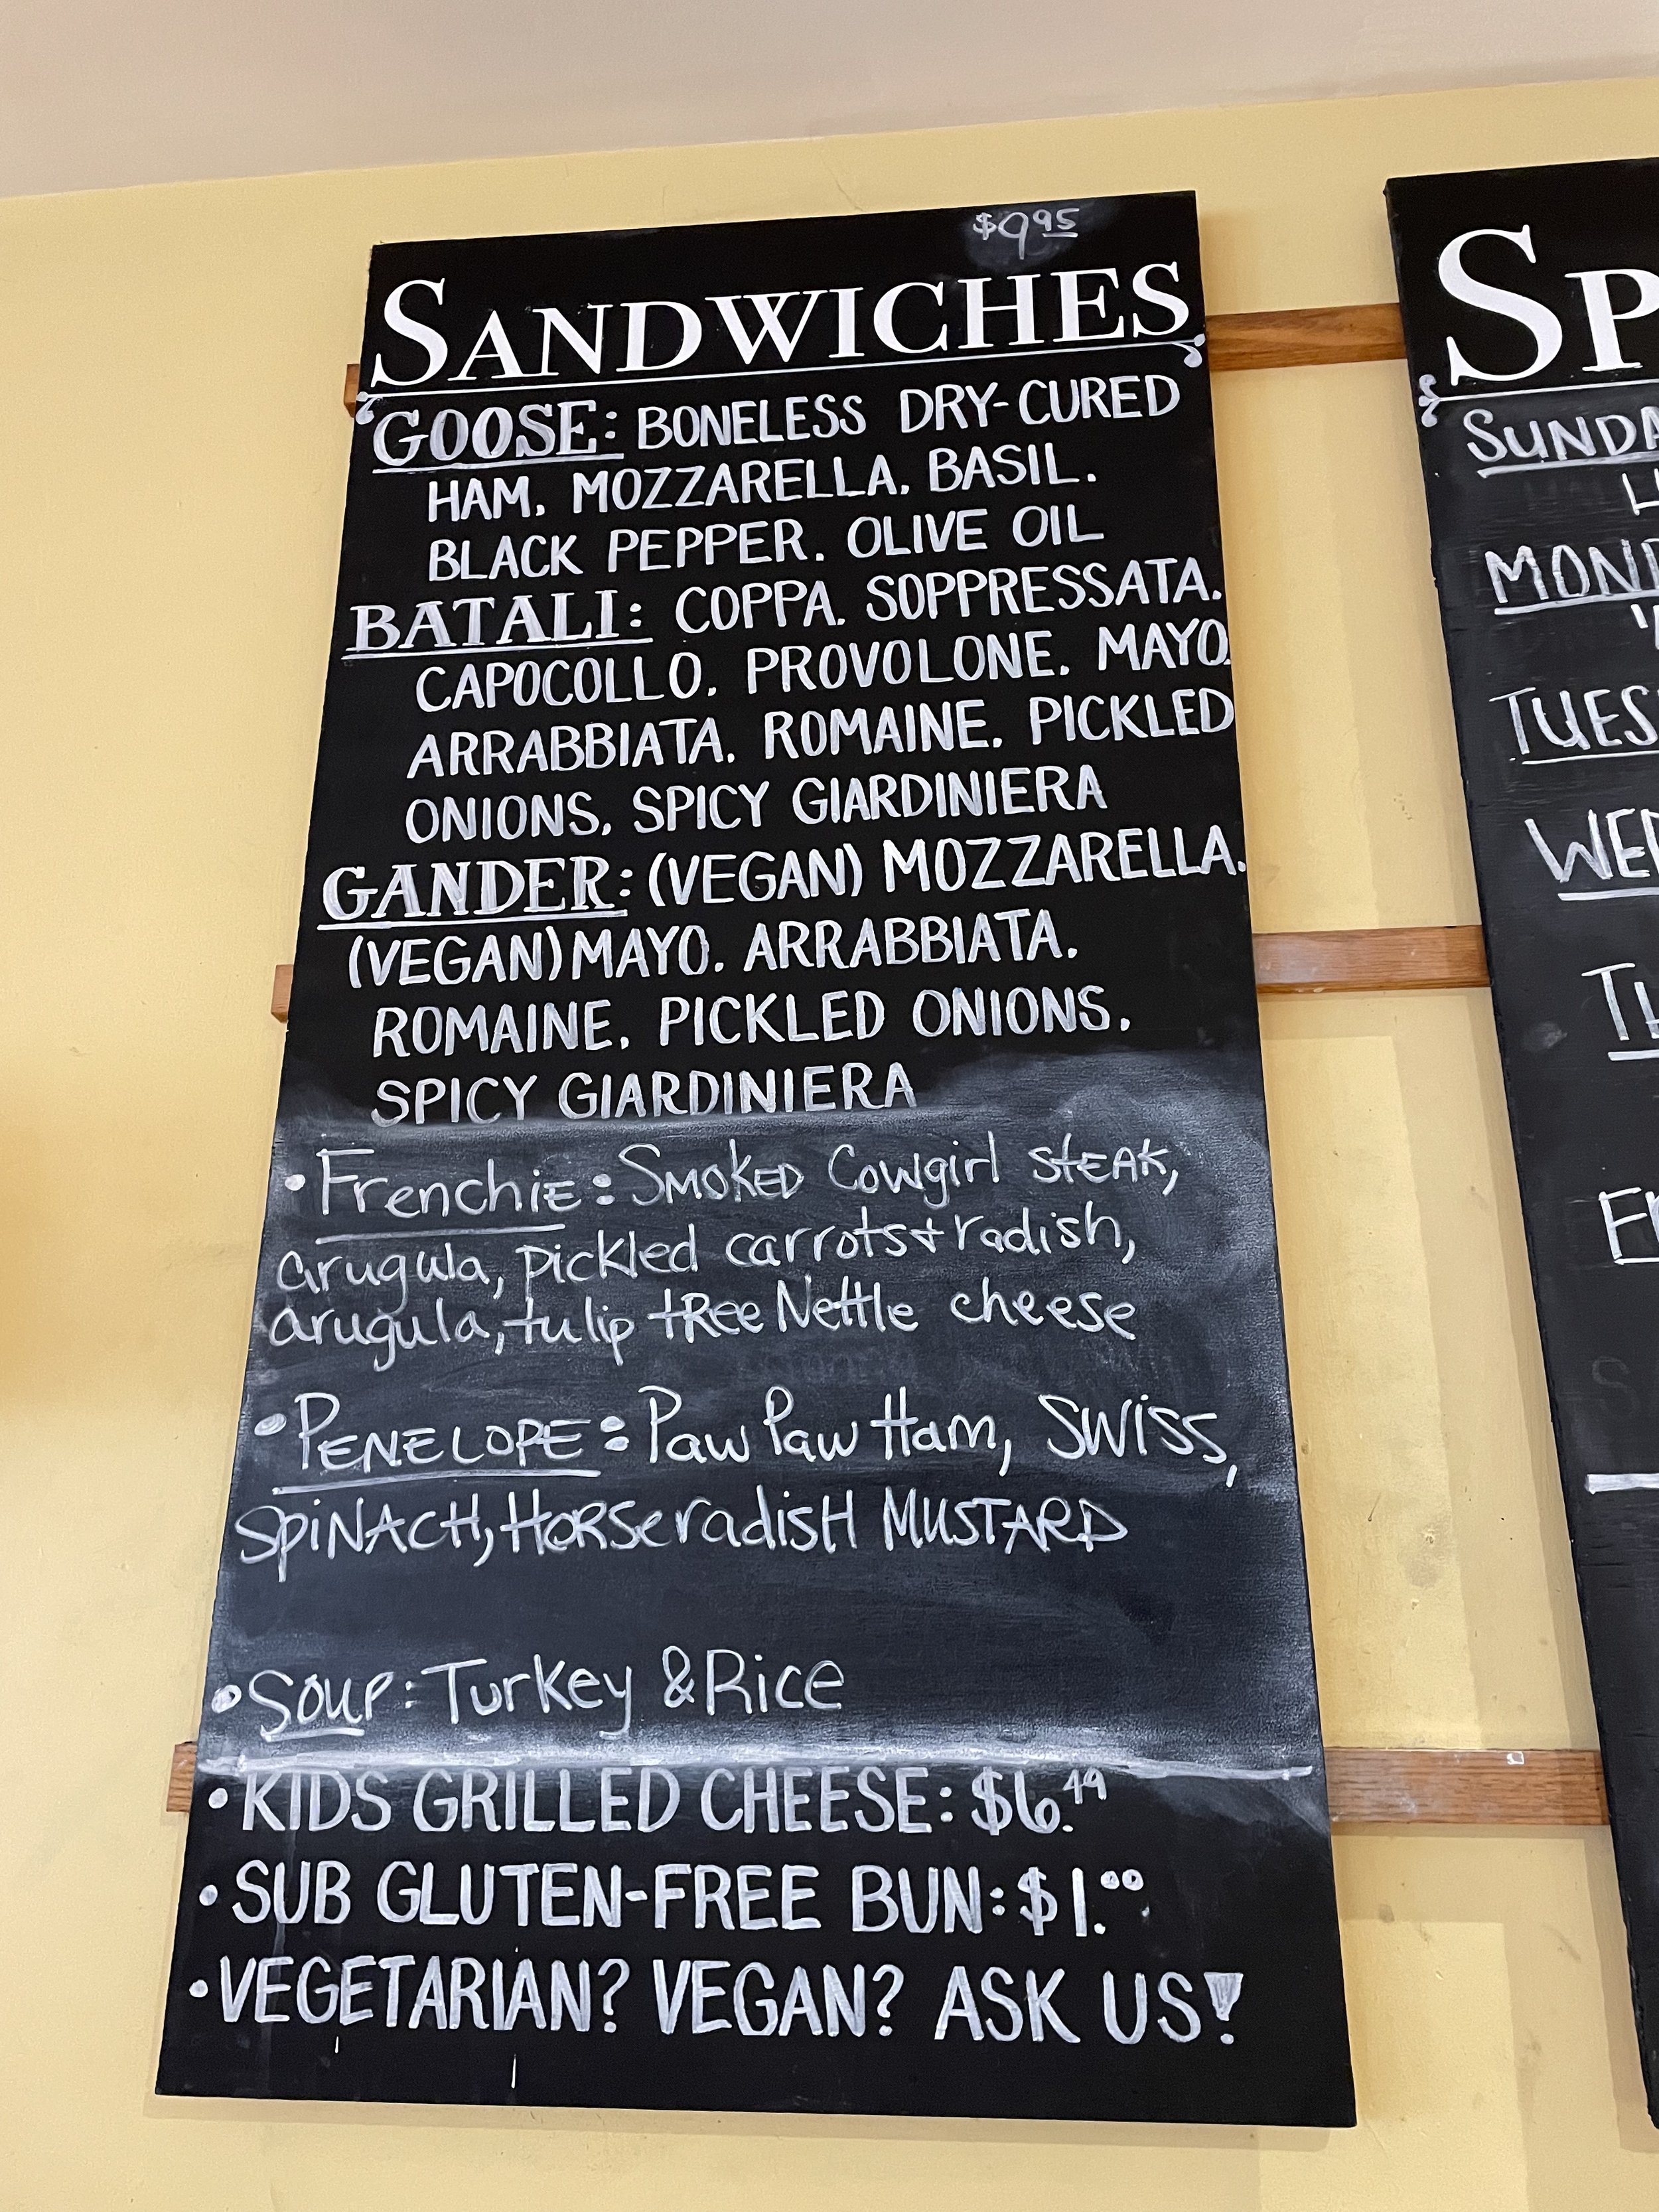 $9.95
SANDWICHES
GOOSE: BONELESS DRY-CURED
HAM. MOZZARELLA. BASIL.
BLACK PEPPER. OLIVE OIL
BATALI: COPPA. SOPPRESSATA.
CAPOCOLLO. PROVOLONE. MAYO.
ARRABBIATA. ROMAINE. PICKLED
ONIONS. SPICY GIARDINIERA
GANDER: (VEGAN) MOZZARELLA.
(VEGAN) MAYO. ARRABBIATA.
ROMAINE. PICKLED ONIONS.
SPICY GIARDINIERA
• FrenchiE: SMOKED Cowgirl STEAK,
arugula, pickled carrots + radish,
arugula, tulip tree Nettle cheese
• PENELOPE: Paw Paw Ham, SWISS,
SPINACH, HORSeradisH MUSTARD
• SOUP: Turkey & Rice
• KIDS GRILLED CHEESE: $6.49
• SUB GLUTEN-FREE BUN: $1.00
• VEGETARIAN? VEGAN? ASK US!
SP
SUNDA
MOND
TUES
WED